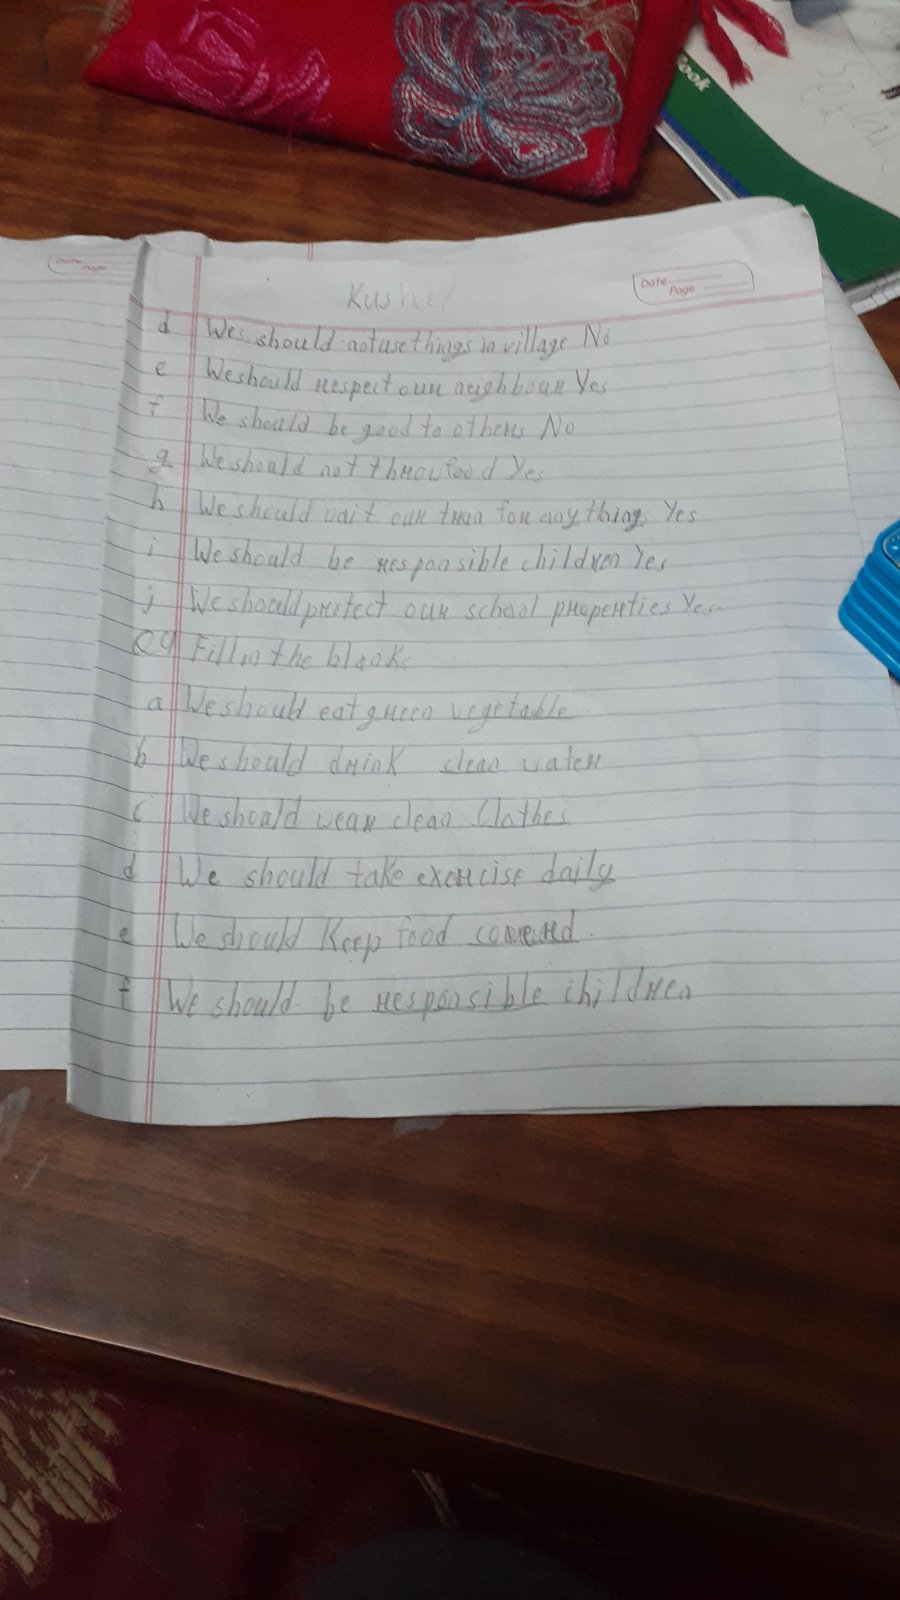 ook
Date
Page
Date
Page
d Wes should not use things in village No
e We should respect our neighbour Yes
f We should be good to others No
g We should not throw food Yes
h We should wait our tran for any things Yes
i We should be responsible children Yes
j We should protect our school properties Yes
Q4 Fill in the blanks
a We should eat green vegetable
b We should drink clean water
c We should wear clean Clothes
d We should take exercise daily
e We should Keep food covered.
f We should be responsible children